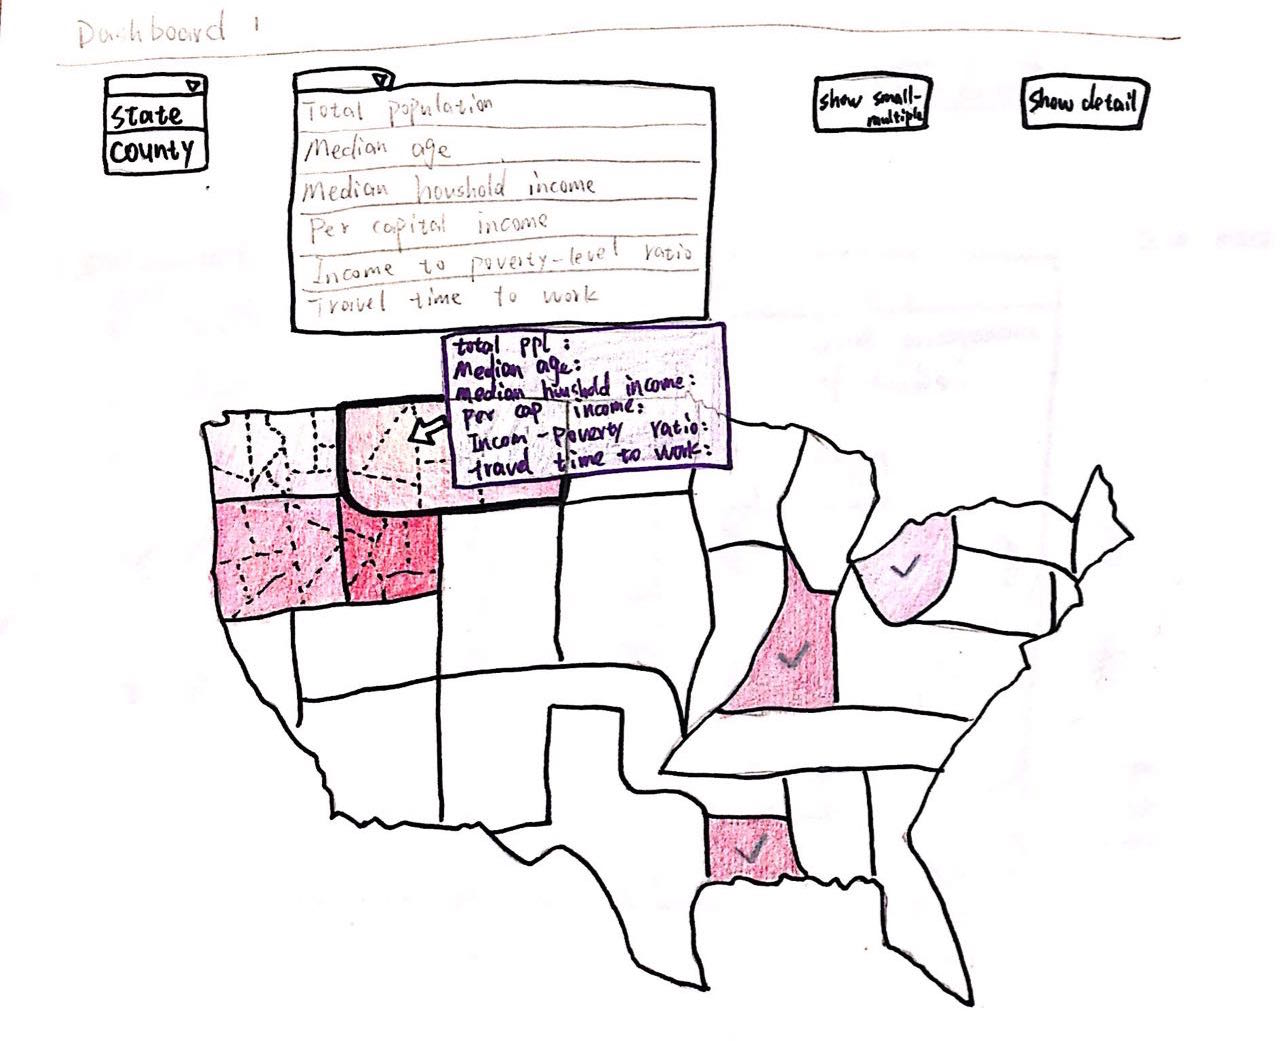 Dashboard 1
State
County
Total population
Median age
Median houshold income
Per capital income
Income to poverty-level ratio
Travel time to work
show small-
multiple
Show detail
total ppl :
Median age:
median houshold income:
per cap income:
Incom-poverty ratio:
travel time to work: